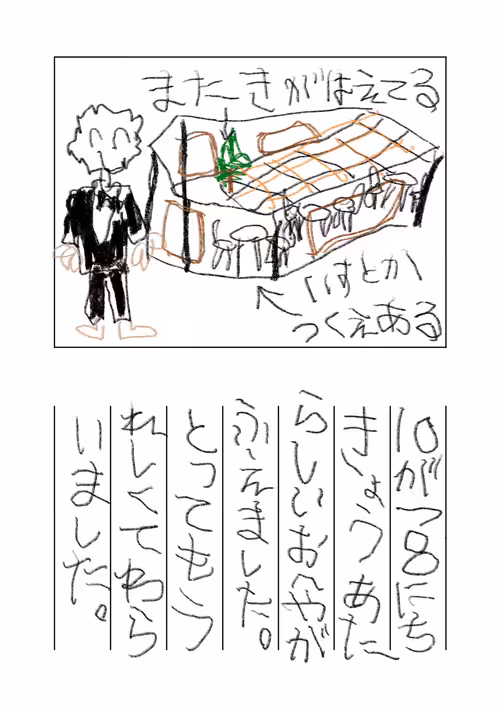 またきがはえてる
いすとか
つくえある
10がつ8にち
きょうあた
らしいおへやが
ふえました。
とってもう
れしくてわら
いました。